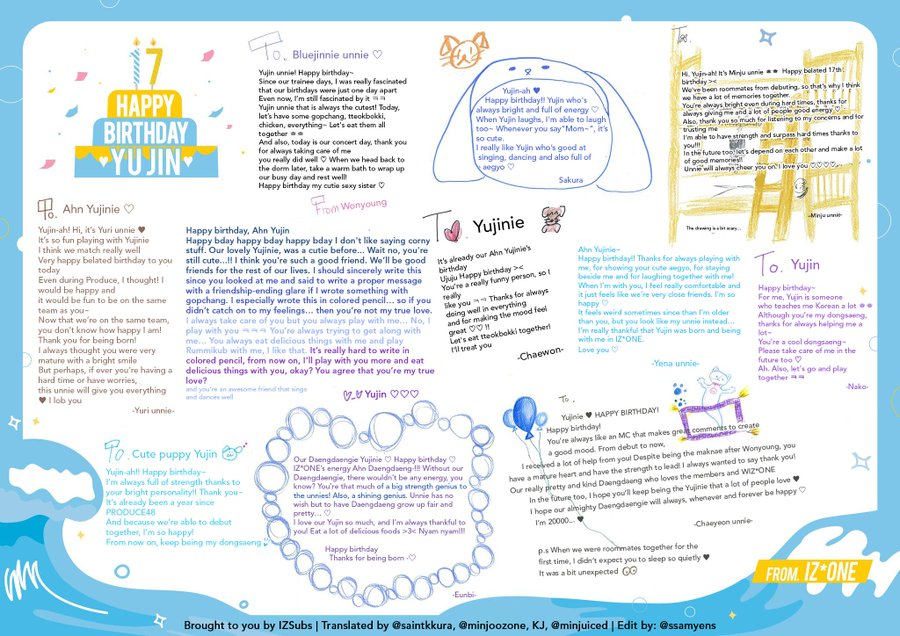 17
HAPPY
BIRTHDAY
YUJIN
To. Bluejinnie unnie ♡
Yujin unnie! Happy birthday~
Since our trainee days, I was really fascinated
that our birthdays were just one day apart
Even now, I'm still fascinated by it ㅋㅋ
Yujin unnie that is always the cutest! Today,
let's have some gopchang, tteokbokki,
chicken, everything~ Let's eat them all
together ㅎㅎ
And also, today is our concert day, thank you
for always taking care of me
you really did well ♡ When we head back to
the dorm later, take a warm bath to wrap up
our busy day and rest well!
Happy birthday my cutie sexy sister ♡
From Wonyoung
Yujin-ah ♥
Happy birthday!! Yujin who's
always bright and full of energy ♡
When Yujin laughs, I'm able to laugh
too~ Whenever you say"Mom~", it's
so cute.
I really like Yujin who's good at
singing, dancing and also full of
aegyo ♡
Sakura
To.
Hi, Yujin-ah! It's Minju unnie ㅎㅎ Happy belated 17th
birthday ><
We've been roommates from debuting, so that's why I think
we have a lot of memories together.
You're always bright even during hard times, thanks for
always giving me and a lot of people good energy ♡
Also, thank you so much for listening to my concerns and for
trusting me
I'm able to have strength and surpass hard times thanks to
you!!!
In the future too, let's depend on each other and make a lot
of good memories!!
Unnie will always cheer you on. I love you ♡♡♡♡
-Minju unnie-
The drawing is a bit scary...
To. Ahn Yujinie ♡
Yujin-ah! Hi, it's Yuri unnie ♥
It's so fun playing with Yujinie
I think we match really well
Very happy belated birthday to you
today
Even during Produce, I thought! I
would be happy and
it would be fun to be on the same
team as you~
Now that we're on the same team,
you don't know how happy I am!
Thank you for being born!
I always thought you were very
mature with a bright smile
But perhaps, if ever you're having a
hard time or have worries,
this unnie will give you everything
♥ I lob you
-Yuri unnie-
Happy birthday, Ahn Yujin
Happy bday happy bday happy bday I don't like saying corny
stuff. Our lovely Yujinie, was a cutie before... Wait no, you're
still cute...!! I think you're such a good friend. We'll be good
friends for the rest of our lives. I should sincerely write this
since you looked at me and said to write a proper message
with a friendship-ending glare if I wrote something with
gopchang. I especially wrote this in colored pencil... so if you
didn't catch on to my feelings... then you're not my true love.
I always take care of you but you always play with me... No, I
play with you ㅋㅋㅋ You're always trying to get along with
me... You always eat delicious things with me and play
Rummikub with me, I like that. It's really hard to write in
colored pencil, from now on, I'll play with you more and eat
delicious things with you, okay? You agree that you're my true
love?
and you're an awesome friend that sings
and dances well
To. Yujinie
It's already our Ahn Yujinie's
birthday
Ujuju Happy birthday ><
You're a really funny person, so I
really
like you ㅋㅋ Thanks for always
doing well in everything
and for making the mood feel
great ♡♡ !!
Let's eat tteokbokki together!
I'll treat you
-Chaewon-
Ahn Yujinie~
Happy birthday!! Thanks for always playing with
me, for showing your cute aegyo, for staying
beside me and for laughing together with me!
When I'm with you, I feel really comfortable and
it just feels like we're very close friends. I'm so
happy ♡
It feels weird sometimes since I'm older
than you, but you look like my unnie instead...
I'm really thankful that Yujin was born and being
with me in IZ*ONE.
Love you ♡
-Yena unnie-
To. Yujin
Happy birthday~
For me, Yujin is someone
who teaches me Korean a lot ㅎㅎ
Although you're my dongsaeng,
thanks for always helping me a
lot~
You're a cool dongsaeng~
Please take care of me in the
future too ♡
Ah. Also, let's go and play
together ㅋㅋ
-Nako-
To. Cute puppy Yujin
Yujin-ah!! Happy birthday~
I'm always full of strength thanks to
your bright personality!! Thank you~
It's already been a year since
PRODUCE48
And because we're able to debut
together, I'm so happy!
From now on, keep being my dongsaeng
Yujin ♡♡♡
Our Daengdaengie Yujinie ♡ Happy birthday ♡
IZ*ONE's energy Ahn Daengdaeng~!!! Without our
Daengdaengie, there wouldn't be any energy, you
know? You're that much of a big strength genius to
the unnies! Also, a shining genius. Unnie has no
wish but to have Daengdaeng grow up fair and
pretty... ♡
I love our Yujin so much, and I'm always thankful to
you! Eat a lot of delicious foods >3< Nyam nyam!!!
Happy birthday
Thanks for being born -♡
-Eunbi-
To.
Yujinie ♥ HAPPY BIRTHDAY!
Happy birthday!
You're always like an MC that makes great comments to create
a good mood. From debut to now,
I received a lot of help from you! Despite being the maknae after Wonyoung, you
have a mature heart and have the strength to lead! I always wanted to say thank you!
Our really pretty and kind Daengdaeng who loves the members and WIZ*ONE
In the future too, I hope you'll keep being the Yujinie that a lot of people love ♥
I hope our almighty Daengdaengie will always, whenever and forever be happy ♡
I'm 20000... ♥
-Chaeyeon unnie-
p.s When we were roommates together for the
first time, I didn't expect you to sleep so quietly ♥
It was a bit unexpected
FROM. IZ*ONE
Brought to you by IZSubs | Translated by @saintkkura, @minjoozone, KJ, @minjuiced | Edit by: @ssamyens